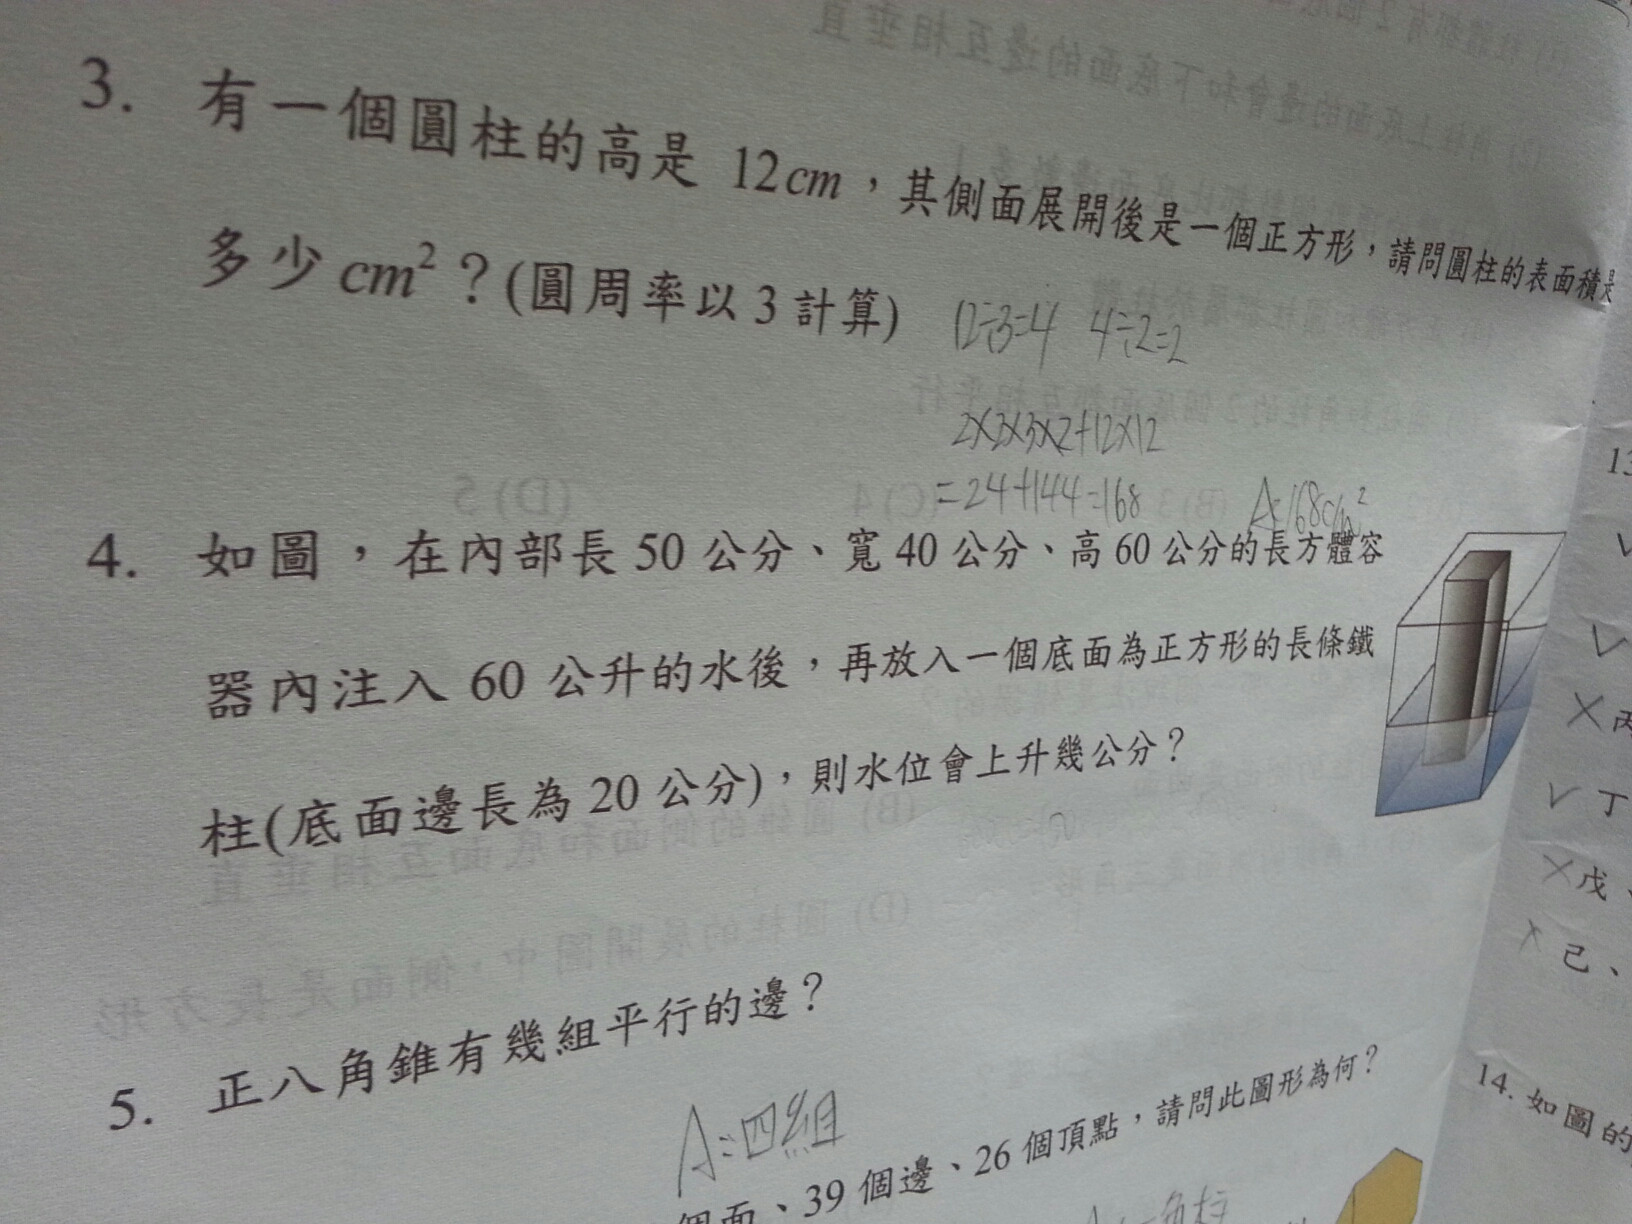 3. 有一個圓柱的高是 12cm，其側面展開後是一個正方形，請問圓柱的表面積是
多少 cm²？(圓周率以 3 計算)
12÷3=4 4÷2=2
2×2×3×2+12×12
=24+144=168
A:168cm²
4. 如圖，在內部長 50 公分、寬 40 公分、高 60 公分的長方體容
器內注入 60 公升的水後，再放入一個底面為正方形的長條鐵
柱(底面邊長為 20 公分)，則水位會上升幾公分？
5. 正八角錐有幾組平行的邊？
A:四組
個面、39 個邊、26 個頂點，請問此圖形為何？
角柱
13
✓
✓
×丙
✓丁
×戊、
×己、
14. 如圖的